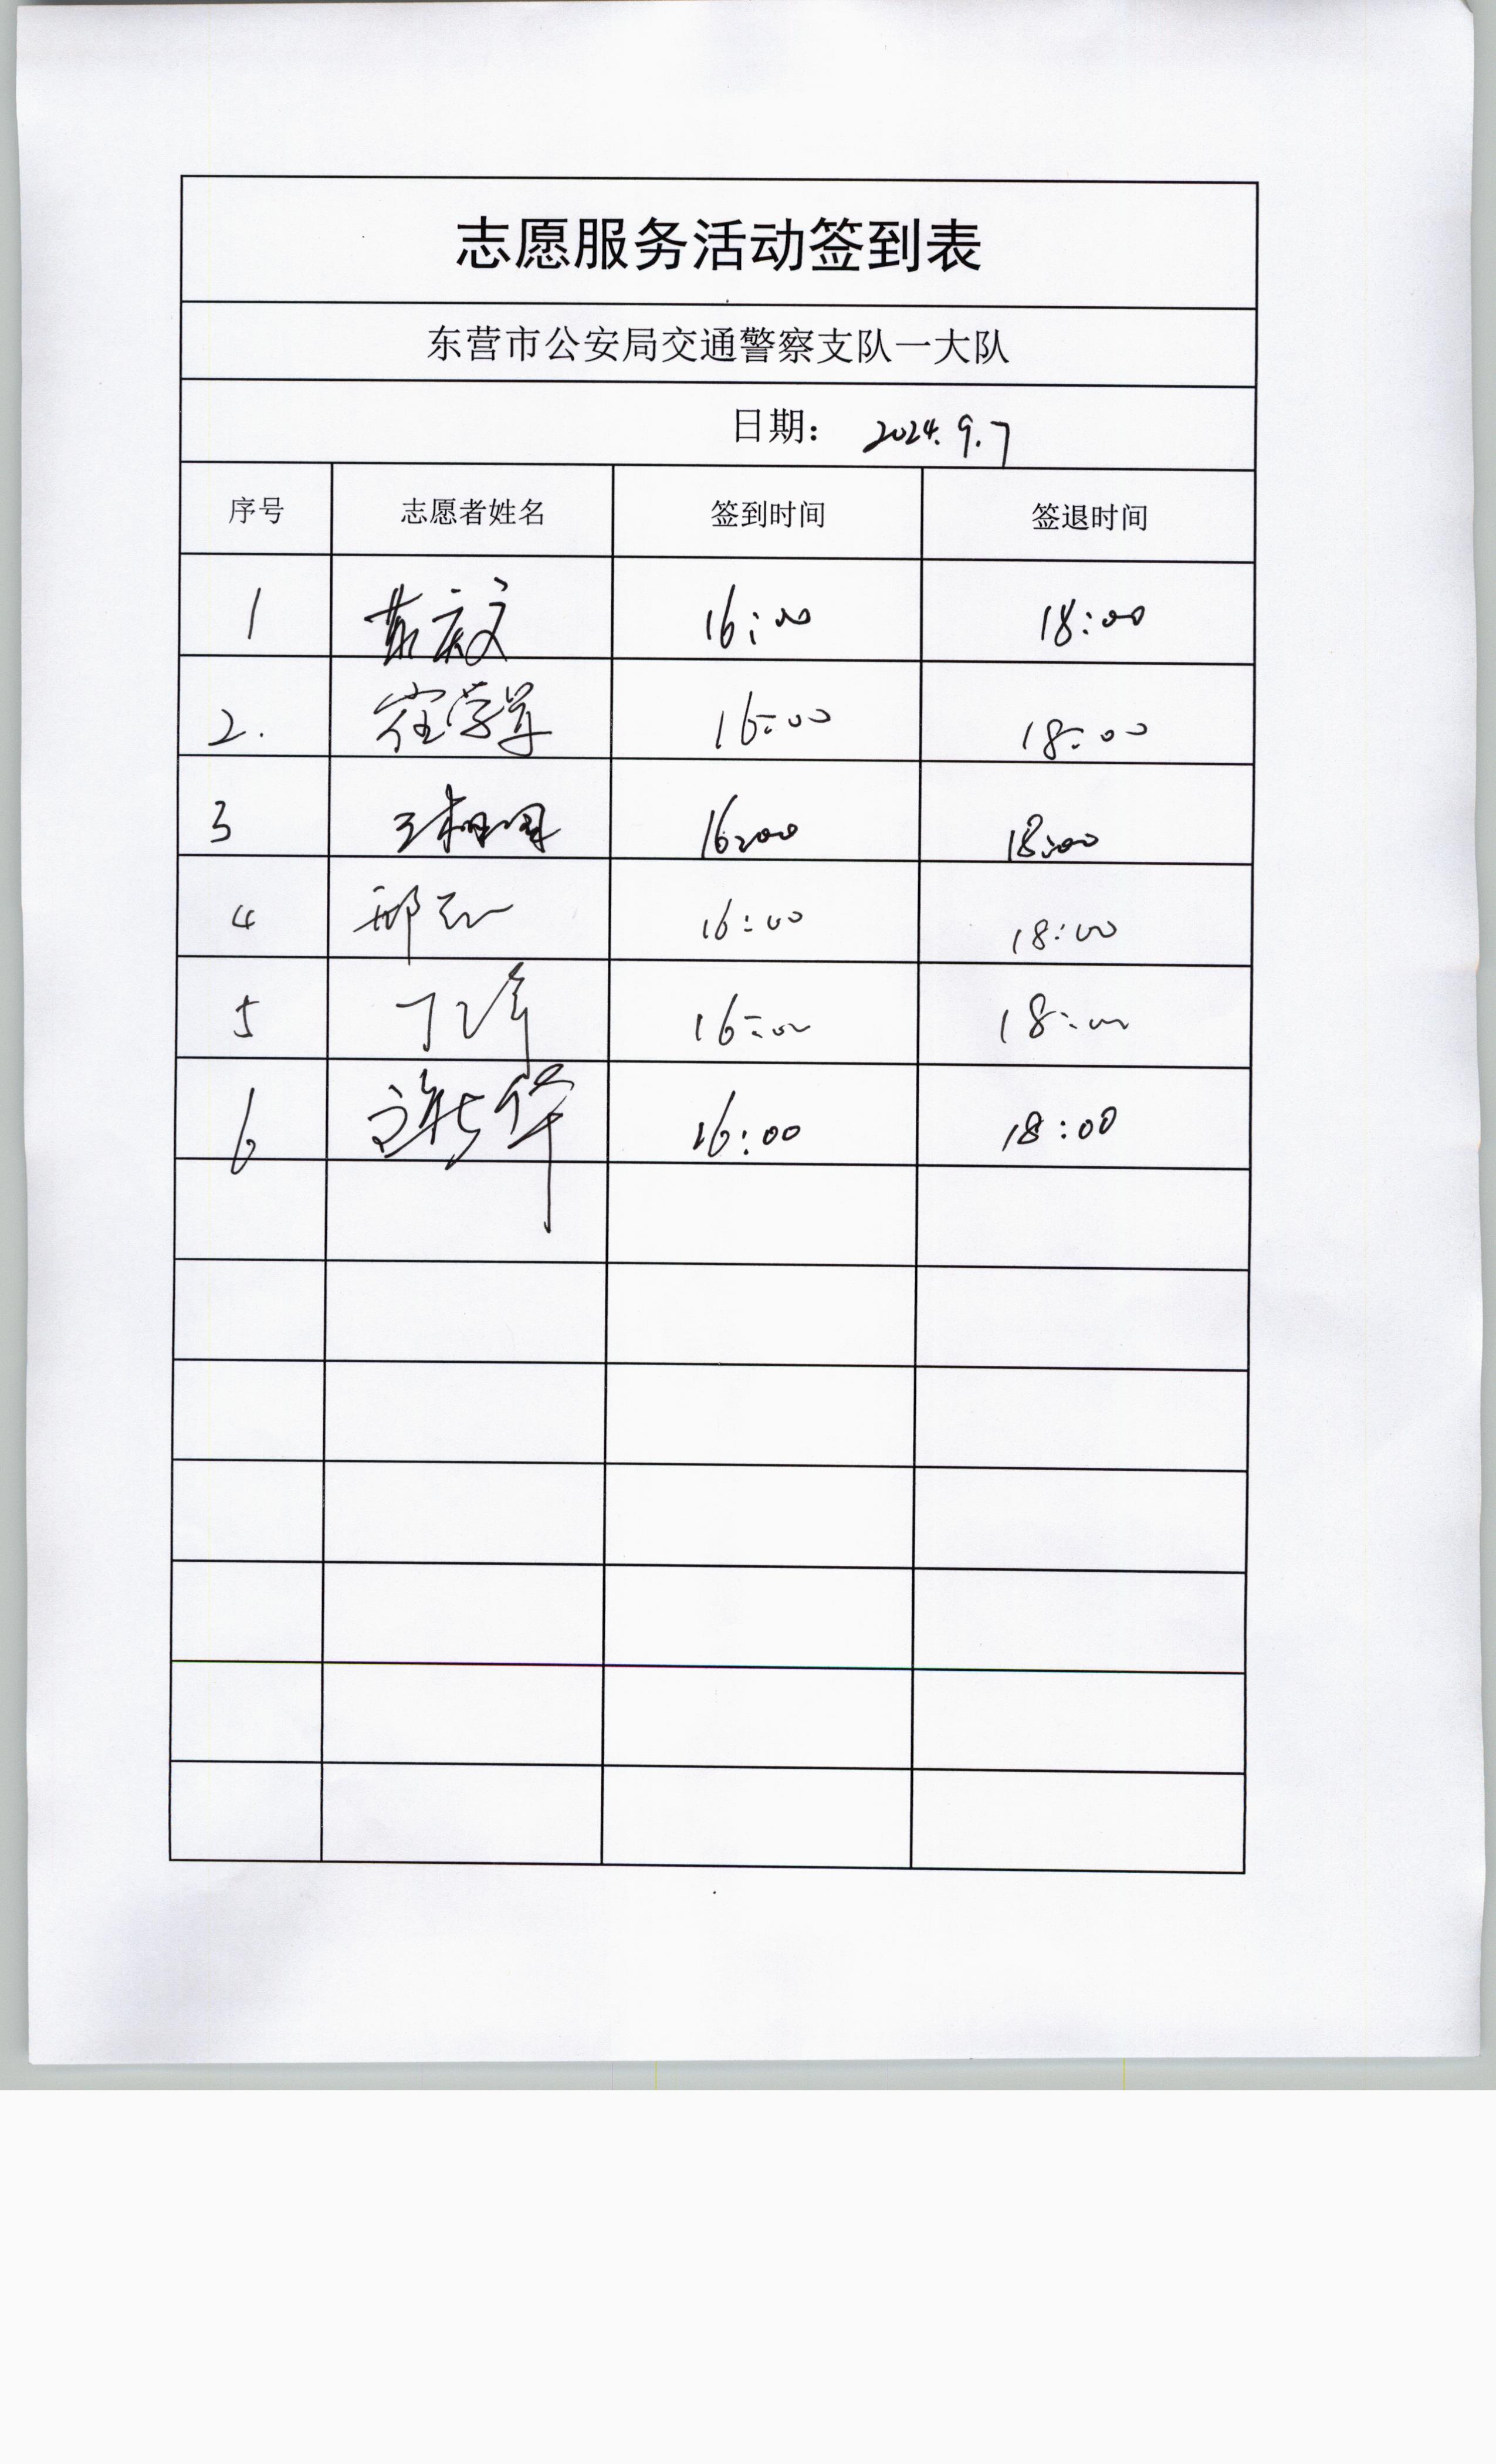 志愿服务活动签到表
东营市公安局交通警察支队一大队
日期： 2024.9.7
序号 志愿者姓名 签到时间 签退时间
1 16:00 18:00
2. 16:00 18:00
3 16:00 18:00
4 邢 16:00 18:00
5 丁 16:00 18:00
6 16:00 18:00